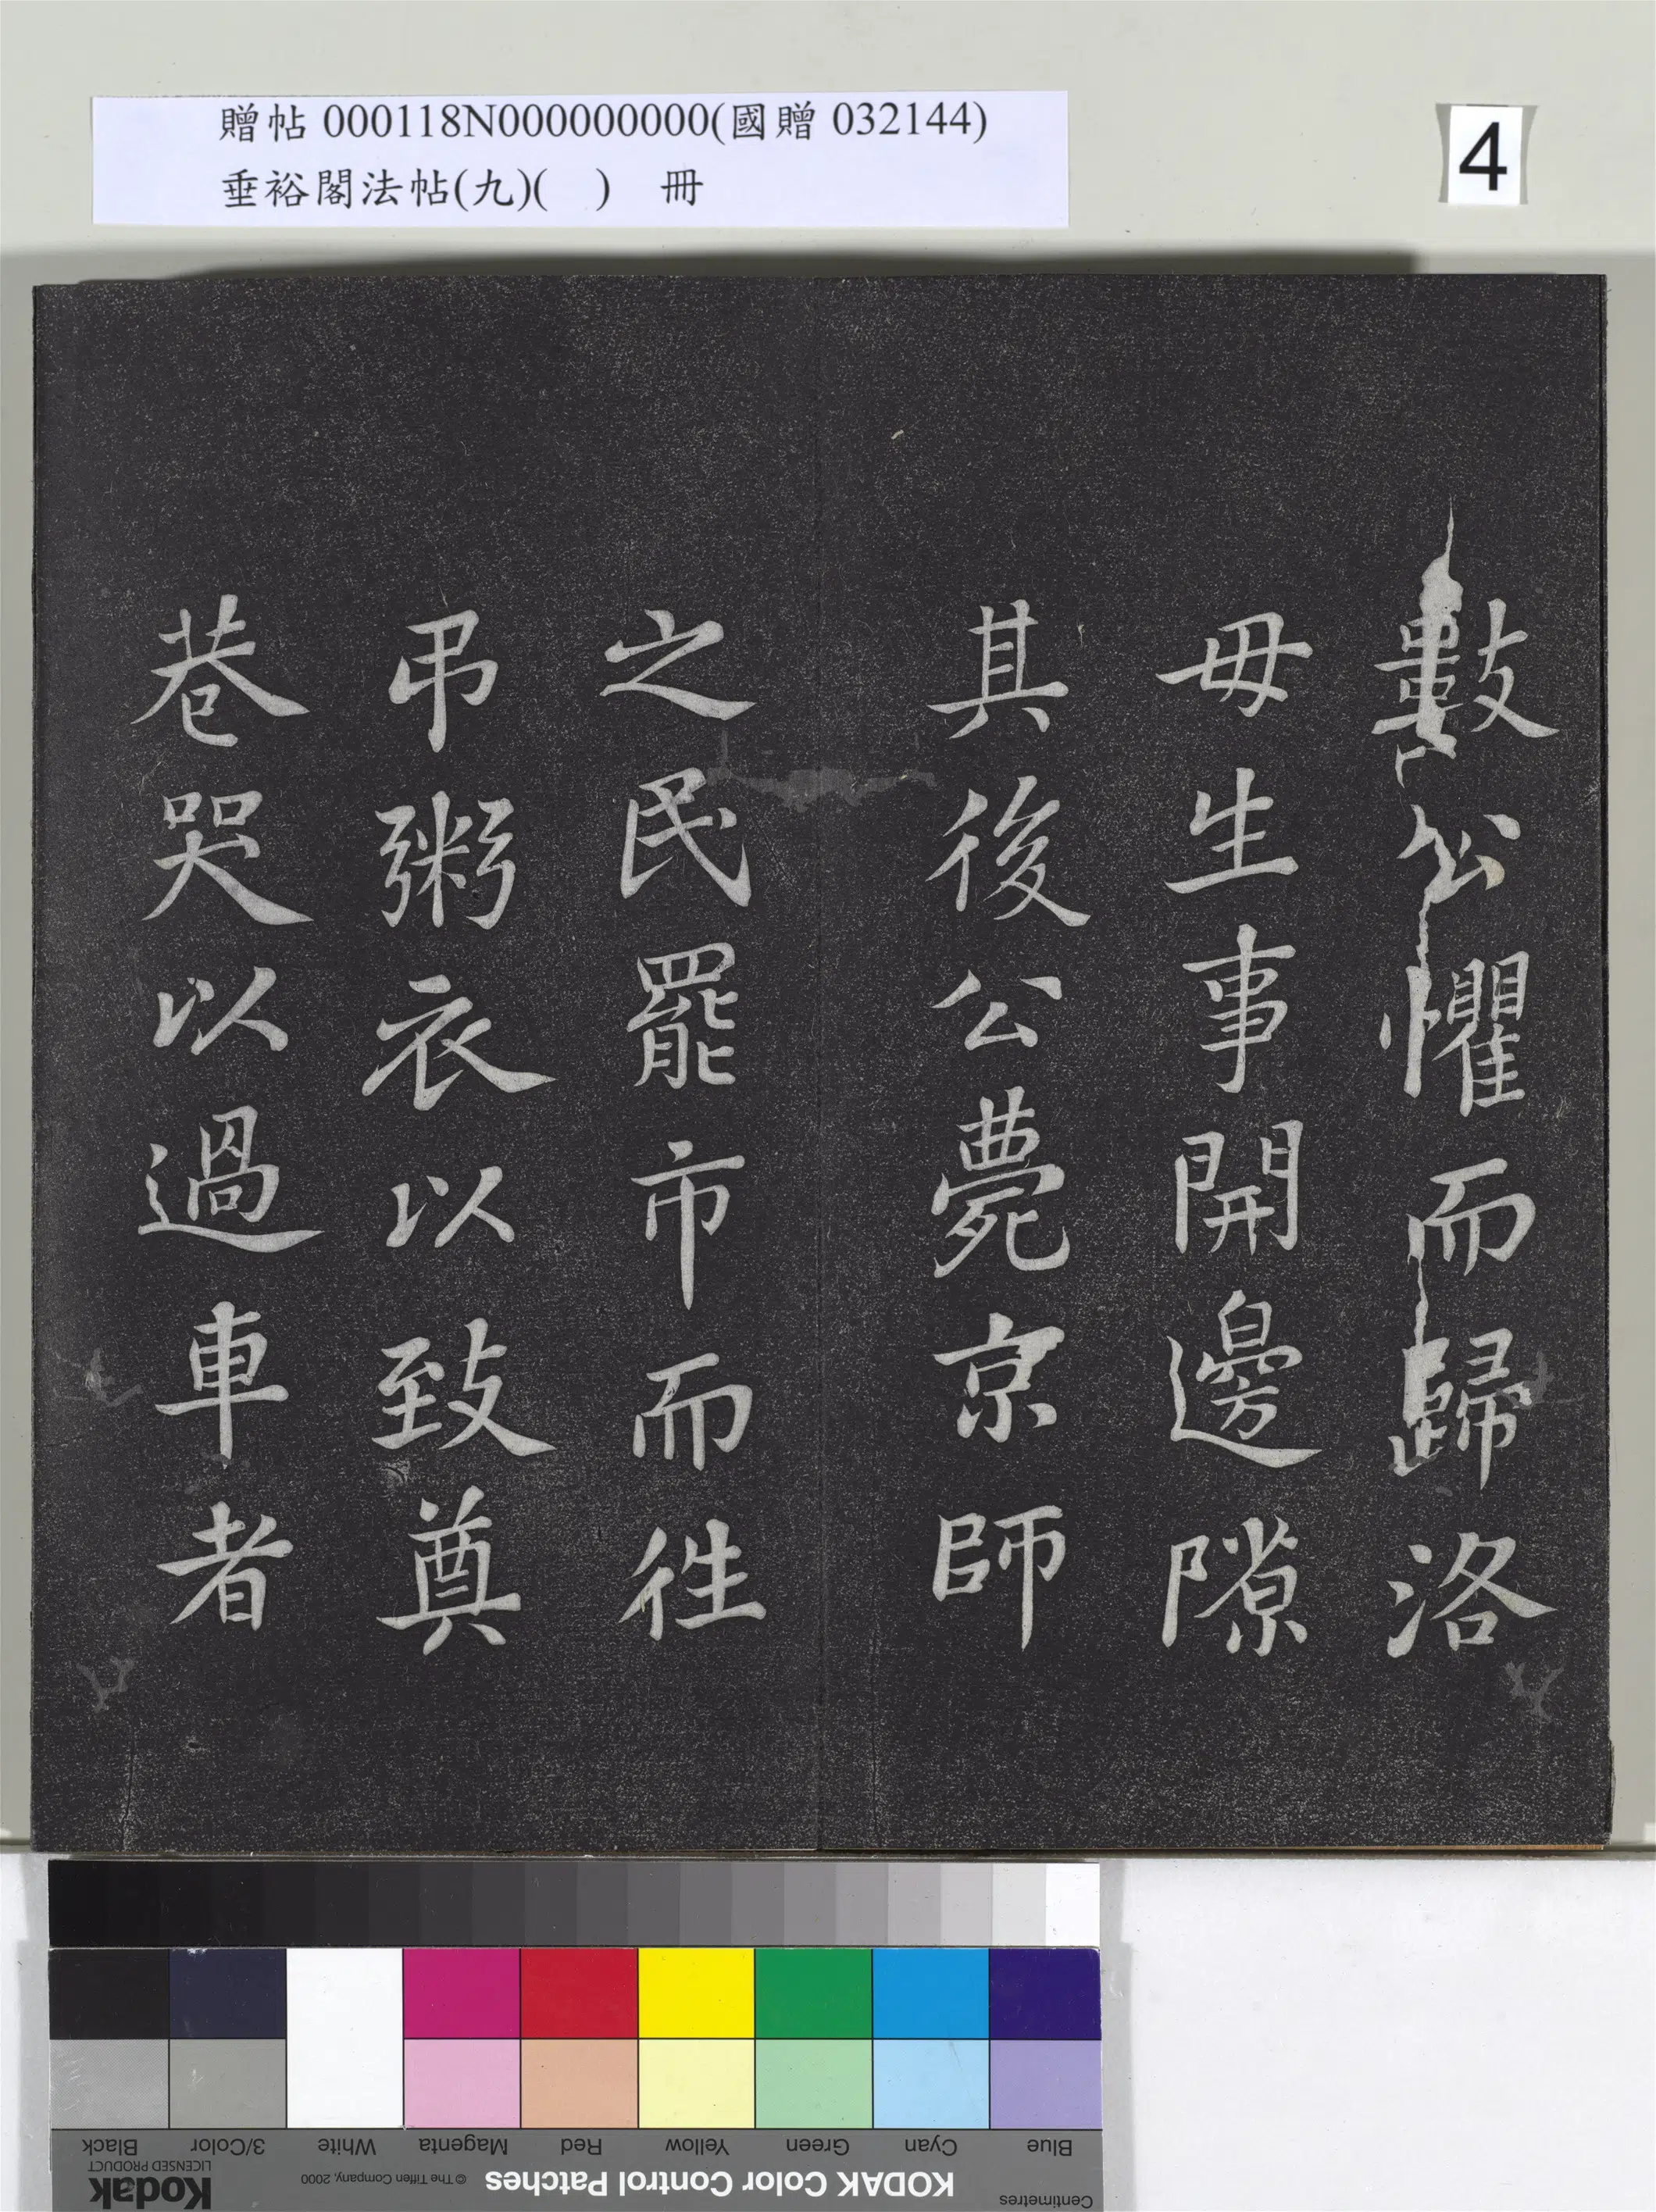 贈帖 000118N000000000(國贈 032144)
垂裕閣法帖(九)(　)　冊
4
數公懼而歸洛
毋生事開邊隙
其後公薨京師
之民罷市而往
弔粥衣以致奠
巷哭以過車者
Blue Cyan Green Yellow Red Magenta White 3/Color Black
Centimetres
KODAK Color Control Patches
© The Tiffen Company, 2000
Kodak
LICENSED PRODUCT